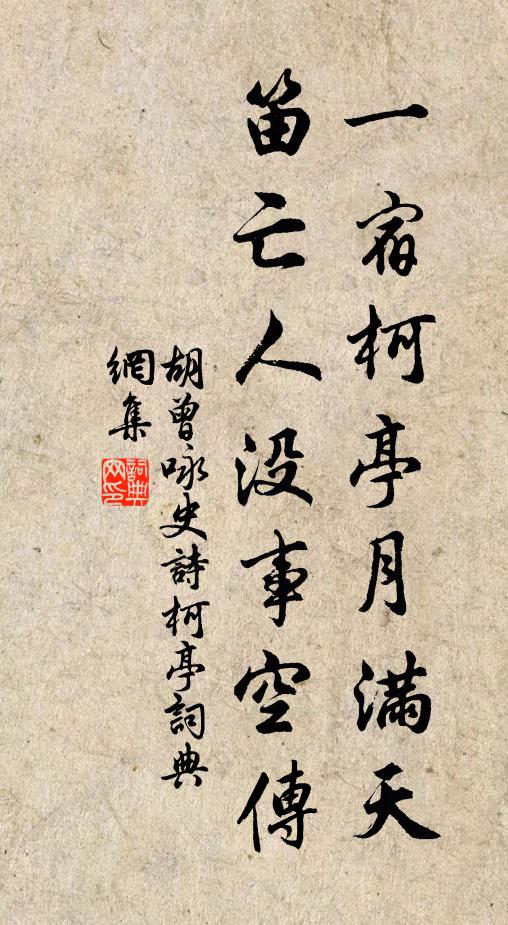 一宿柯亭月滿天
笛亡人没事空傳
胡曾咏史詩柯亭詞典
網集
詞典网印